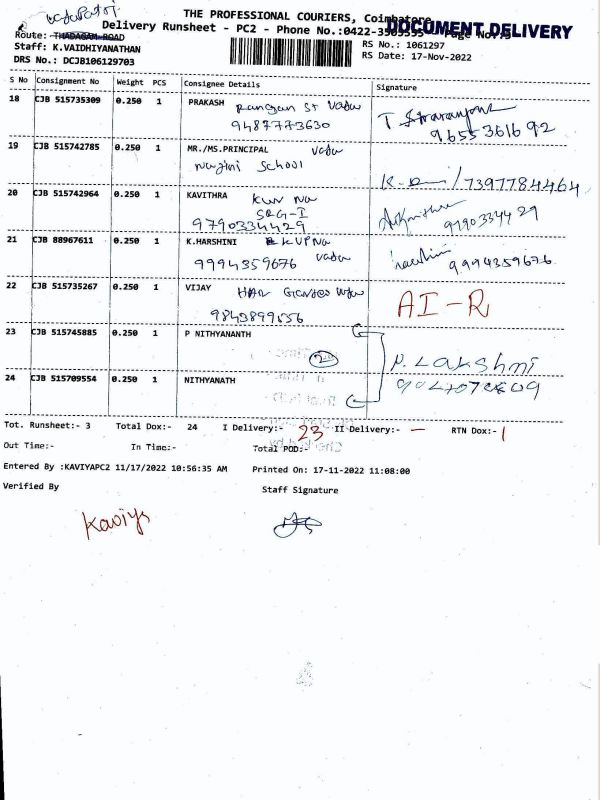 THE PROFESSIONAL COURIERS, Coimbatore
DOCUMENT DELIVERY
Delivery Runsheet - PC2 - Phone No.:0422-3505555 Page No.:3
Route: THADAGAM ROAD
Staff: K.VAIDHIYANATHAN
DRS No.: DCJB106129703
RS No.: 1061297
RS Date: 17-Nov-2022
S No Consignment No Weight PCS Consignee Details Signature
18 CJB 515735309 0.250 1 PRAKASH Rangan St Vada
9487773630
9655361692
19 CJB 515742785 0.250 1 MR./MS.PRINCIPAL Vada
School
7397784464
20 CJB 515742964 0.250 1 KAVITHRA
SRG-I
9790334429
9790334429
21 CJB 88967611 0.250 1 K.HARSHINI KVPNa
9994359676 Vada
9994359676
22 CJB 515735267 0.250 1 VIJAY
9843899556
AI-R
23 CJB 515745885 0.250 1 P NITHYANANTH
2
N. Lakshmi
24 CJB 515709554 0.250 1 NITHYANATH
Tot. Runsheet:- 3 Total Dox:- 24 I Delivery:- 23 II Delivery:- — RTN Dox:- 1
Out Time:- In Time:- Total POD:-
Entered By :KAVIYAPC2 11/17/2022 10:56:35 AM Printed On: 17-11-2022 11:08:00
Verified By Staff Signature
Kaviya